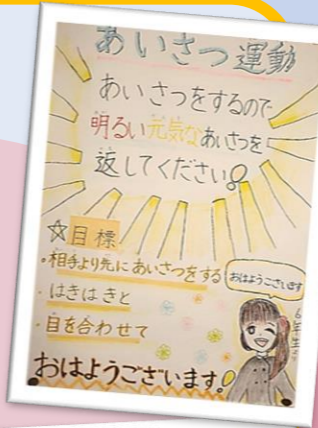 あいさつ運動
あいさつをするので
明るい元気なあいさつを
返してください!
☆目標
・相手より先にあいさつをする
・はきはきと
・目を合わせて
おはようございます
6年生より
おはようございます!